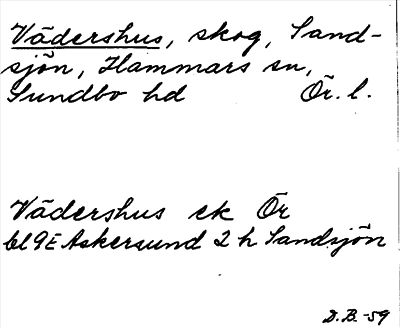 Vädershus, skog, Sand-
sjön, Hammars sn,
Sundbo hd Ör. l.
Vädershus ek Ör
bl 9E Askersund 2 h Sandsjön
D.B.-59